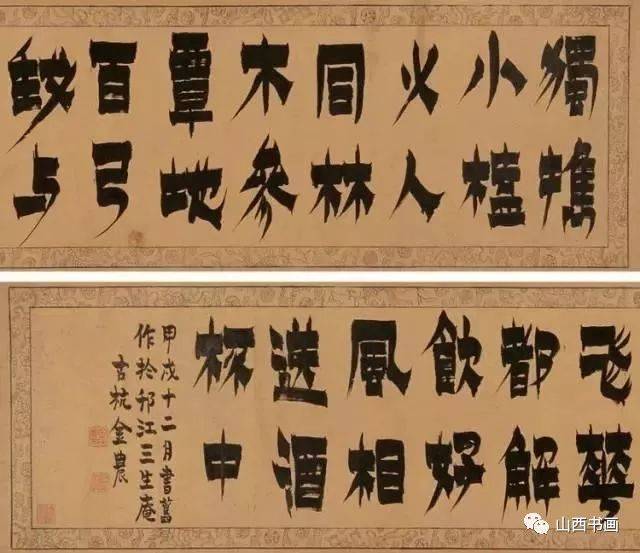 獨携
小榼
人
同林
木參
覃地
百弓
与
飛花
都解
飲好
風相
送酒
杯中
甲戌十二月書舊
作於邗江三生庵
古杭金農
山西书画